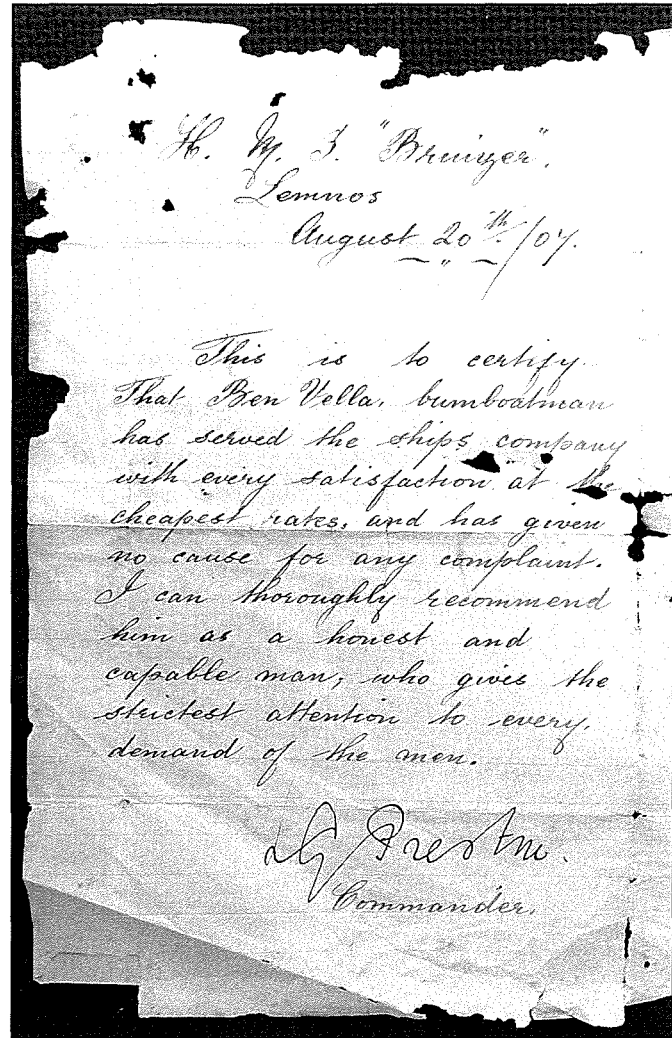 H. M. S. "Bruizer".
Lemnos
August 20th/07.
This is to certify
That Ben Vella, bumboatman
has served the ships company
with every satisfaction at the
cheapest rates, and has given
no cause for any complaint.
I can thoroughly recommend
him as a honest and
capable man, who gives the
strictest attention to every
demand of the men.
Preston.
Commander.